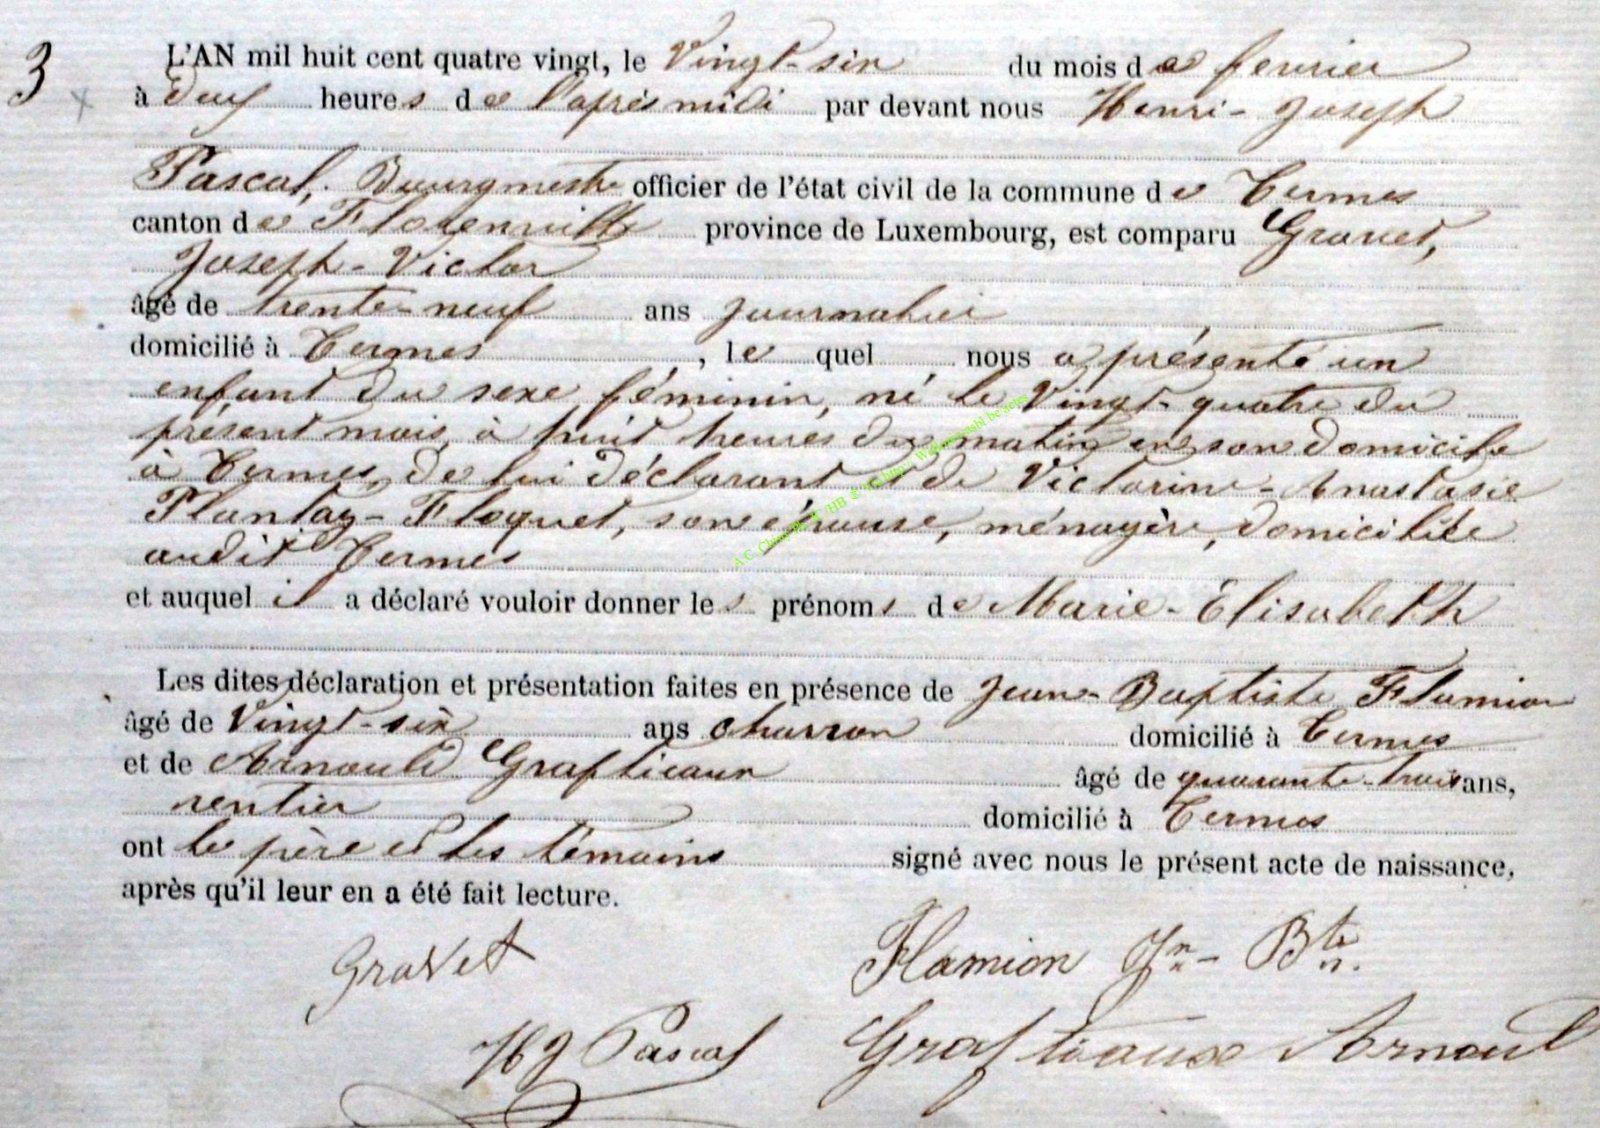 3
L'AN mil huit cent quatre vingt, le Vingt-six du mois de fevrier
à deux heures de l'après midi par devant nous Henri-Joseph
Pascal, Bourgmestre officier de l'état civil de la commune de Termes
canton de Florenville province de Luxembourg, est comparu Gravet,
Joseph-Victor
âgé de trente-neuf ans journalier
domicilié à Termes, lequel nous a présenté un
enfant du sexe féminin, né le Vingt-quatre du
présent mois, à huit heures du matin en son domicile
à Termes, de lui déclarant et de Victorine-Anastasie
Plantay-Floquet, son épouse, ménagère, domiciliée
audit Termes
et auquel il a déclaré vouloir donner les prénoms de Marie-Elisabeth
Les dites déclaration et présentation faites en présence de Jean-Baptiste Flamion
âgé de Vingt-six ans charron domicilié à Termes
et de Arnould Graftieaux âgé de quarante-trois ans,
rentier domicilié à Termes
ont le père et les témoins signé avec nous le présent acte de naissance,
après qu'il leur en a été fait lecture.
Gravet Flamion Jn-Bte
HJ Pascal Graftiaux Arnoul